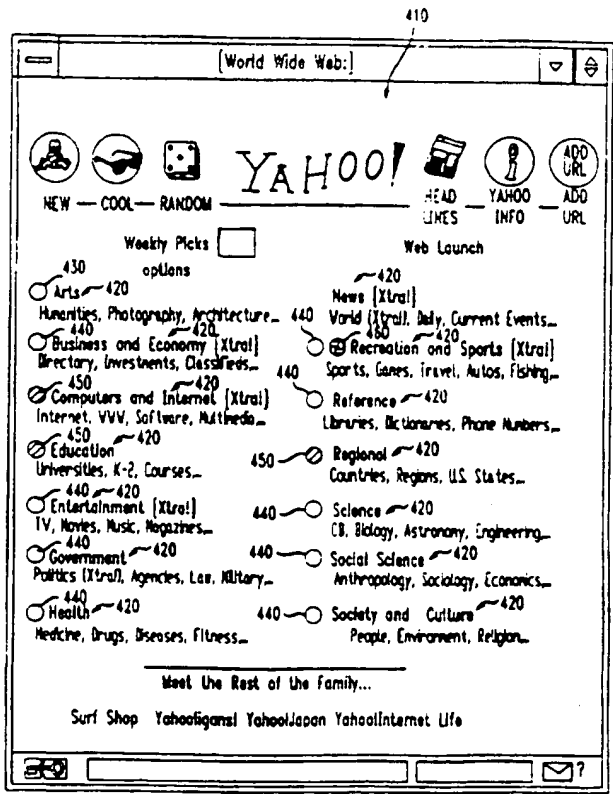 410
[World Wide Web:]
YAHOO!
ADD URL
NEW — COOL — RANDOM
HEAD LINES — YAHOO INFO — ADD URL
Weekly Picks
options
Web Launch
430
Arts 420
Humanities, Photography, Architecture...
440 420
Business and Economy [Xtra!]
Directory, Investments, Classifieds...
450 420
Computers and Internet [Xtra!]
Internet, VVV, Software, Multimedia...
450 420
Education
Universities, K-2, Courses...
440 420
Entertainment [Xtra!]
TV, Movies, Music, Magazines...
440
Government 420
Politics [Xtra!], Agencies, Law, Military...
440
Health 420
Medicine, Drugs, Diseases, Fitness...
420
News [Xtra!]
World [Xtra!], Daily, Current Events...
440 460 420
Recreation and Sports [Xtra!]
Sports, Games, Travel, Autos, Fishing...
440
Reference 420
Libraries, Dictionaries, Phone Numbers...
450 Regional 420
Countries, Regions, U.S. States...
440 Science 420
CB, Biology, Astronomy, Engineering...
440 Social Science 420
Anthropology, Sociology, Economics...
440 Society and Culture 420
People, Environment, Religion...
Meet the Rest of the Family...
Surf Shop Yahooligans! Yahoo!Japan Yahoo!Internet Life
?